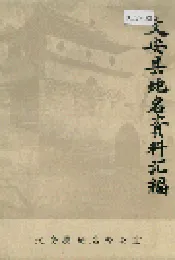 文安县地名资料汇编
文安县地名办公室